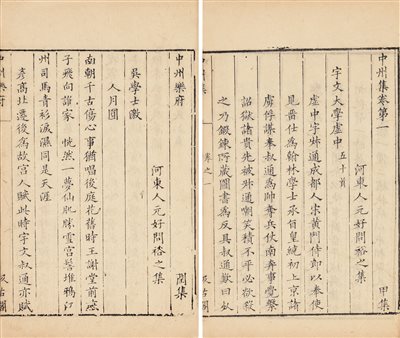 中州集卷第一 甲集
河東人元好問裕之集
宇文大學虛中 五十首
虛中字叔通成都人宋黃門侍郎以奉使
見畱仕為翰林學士承旨皇統初上京諸
虜俘謀奉叔通為帥奪兵仗南奔事覺繫
詔獄諸貴先被叔通嘲笑積不平必欲殺
之乃鍛鍊所藏圖書為反具叔通歎曰死
中州集 卷之一 汲古閣
中州樂府 閏集
河東人元好問裕之集
吳學士激
人月圓
南朝千古傷心事猶唱後庭花舊時王謝堂前燕
子飛向誰家 恍然一夢仙肌勝雪宮髻堆鴉江
州司馬青衫淚濕同是天涯
彥高北遷後為故宮人賦此時宇文叔通亦賦
中州樂府 汲古閣